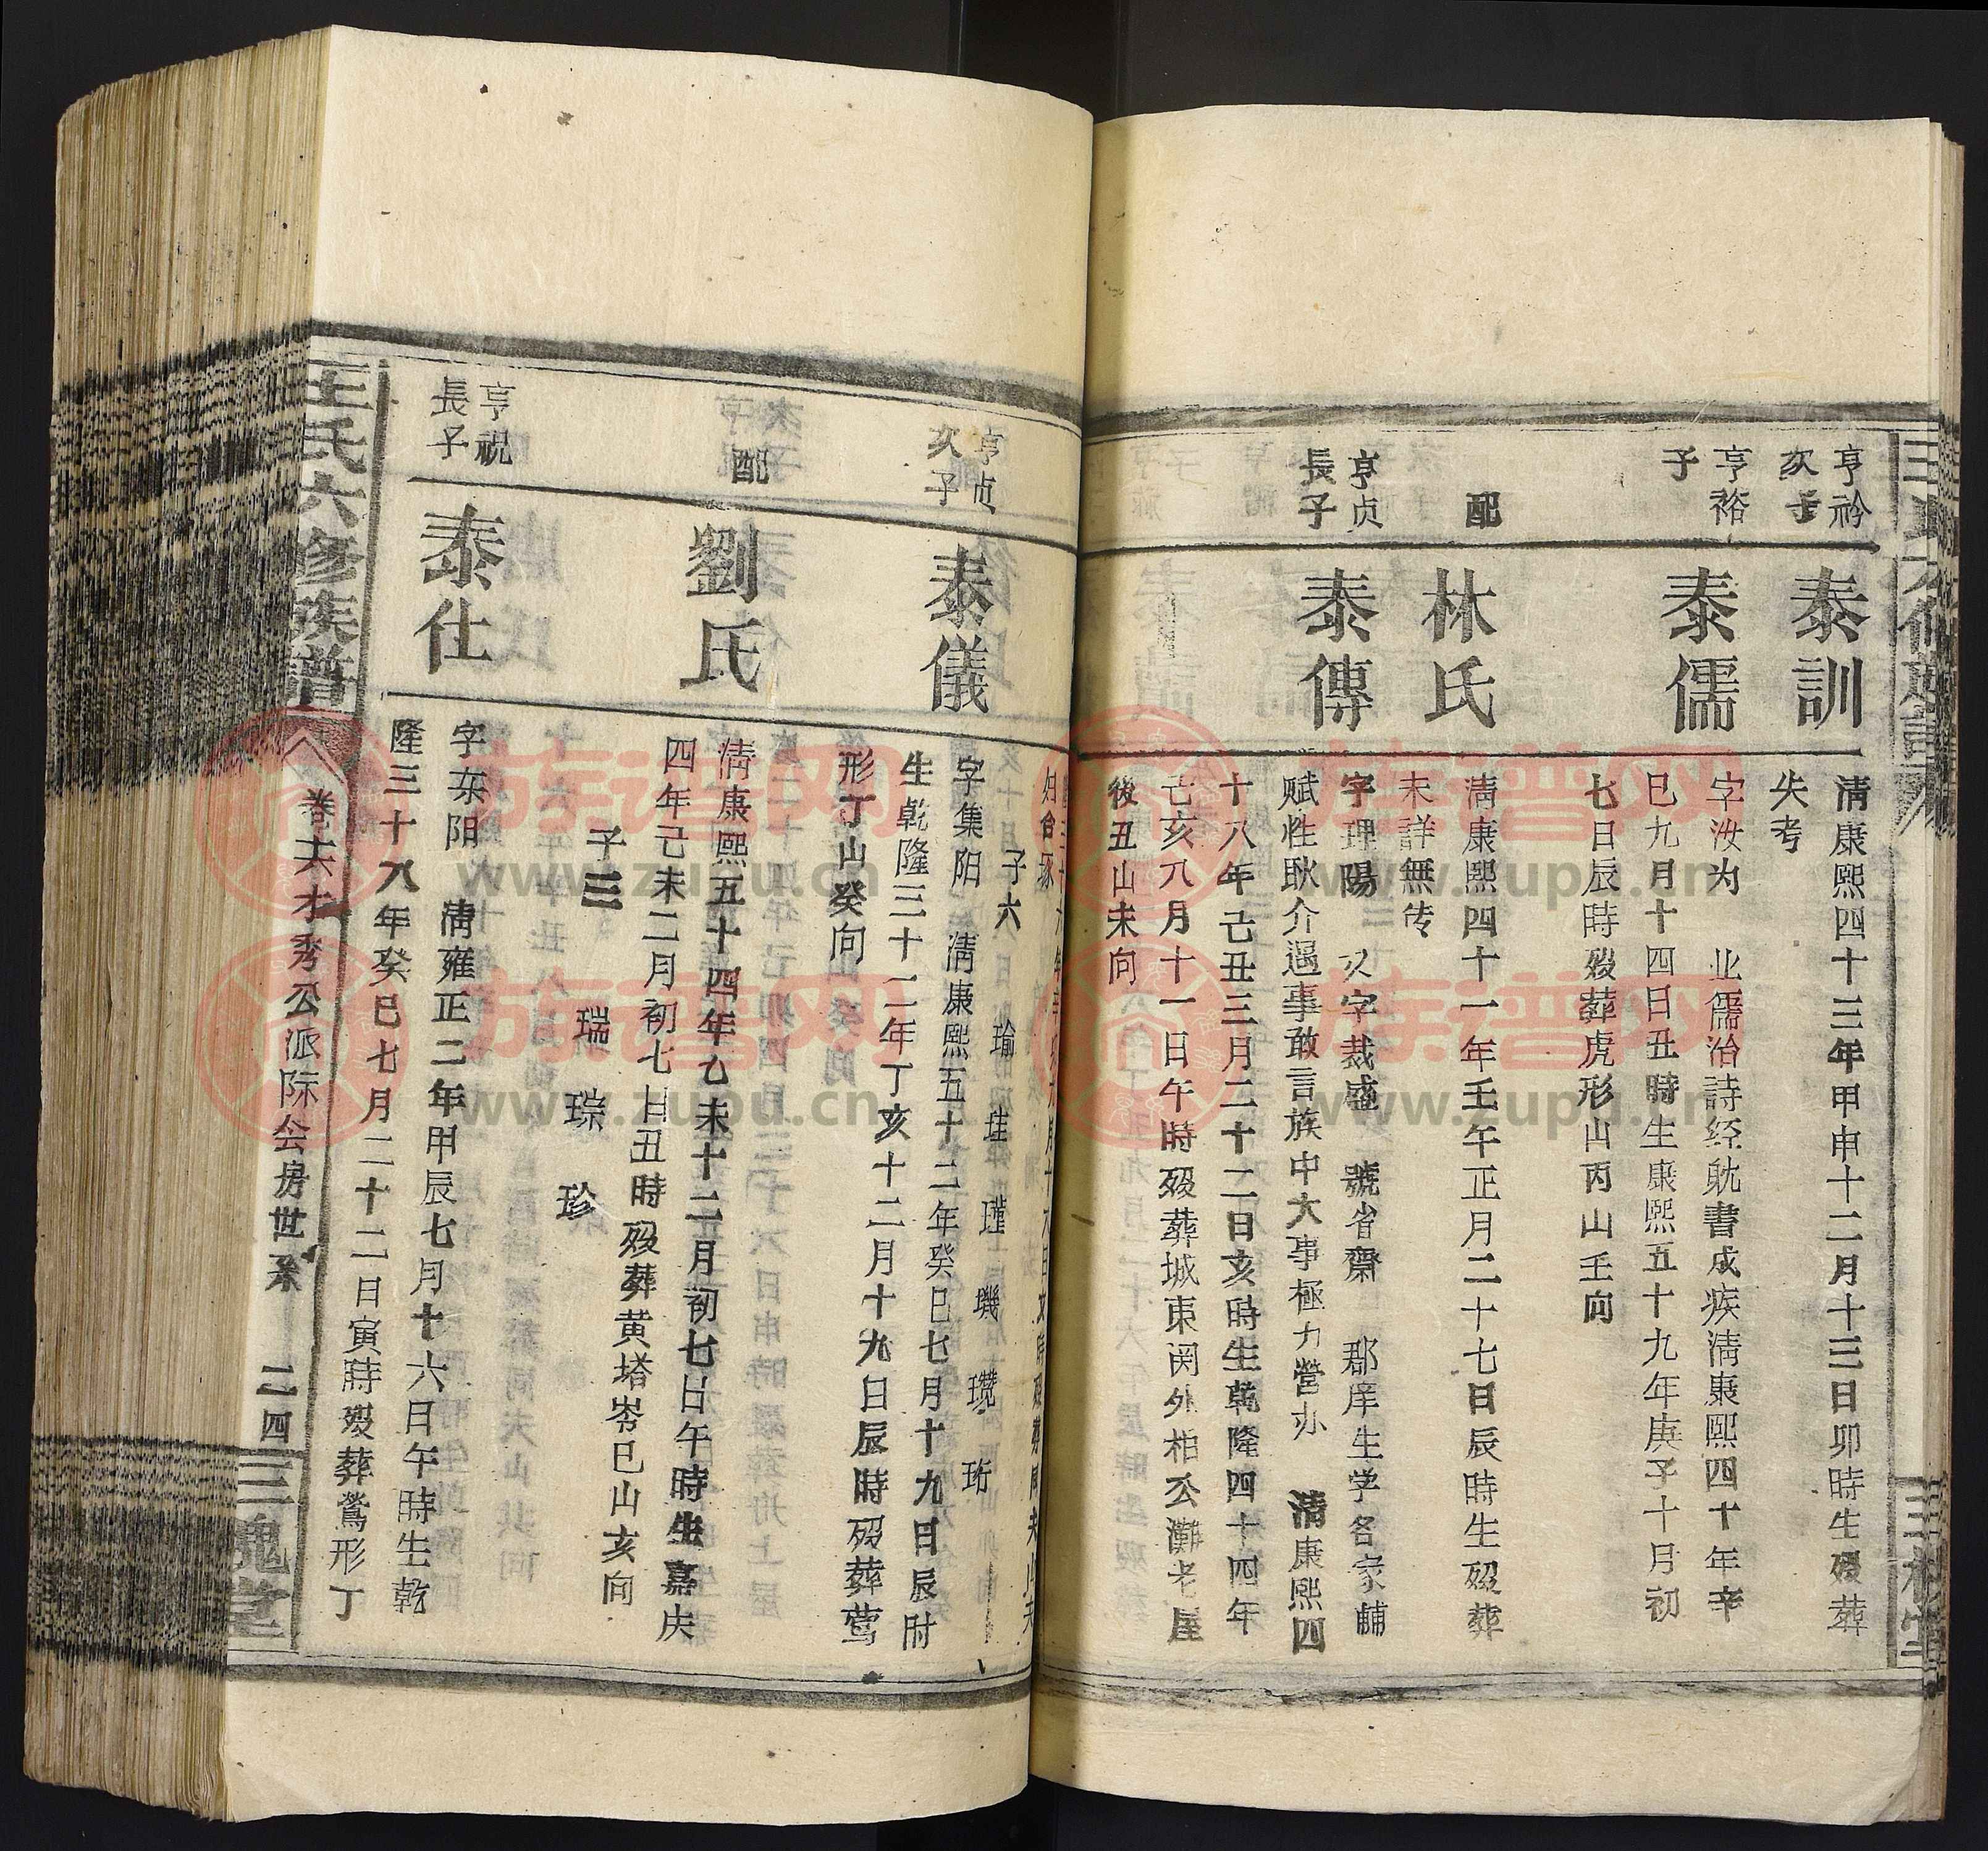 亨衿
次子
泰訓
清康熙四十三年甲申十二月十三日卯時生歿葬
失考
亨裕
子
泰儒
字汝为 业儒治詩经耽書成疾清康熙四十年辛
巳九月十四日丑時生康熙五十九年庚子十月初
七日辰時歿葬虎形山丙山壬向
配
林氏
清康熙四十一年壬午正月二十七日辰時生歿葬
未詳無传
亨贞
長子
泰傳
字理陽 又字裁盛 號省齋 郡庠生学名家輔
赋性耿介遇事敢言族中大事極力營办 清康熙四
十八年己丑三月二十二日亥時生乾隆四十四年
己亥八月十一日午時歿葬城東関外相公灘老屋
後丑山未向
子六 瑜 琟 瑾 璣 瓒 珩
亨贞
次子
泰儀
字集阳 清康熙五十二年癸巳七月十九日辰时
生乾隆三十二年丁亥十二月十九日辰時歿葬莺
形丁山癸向
配
劉氏
清康熙五十四年乙未十二月初七日午時生嘉庆
四年己未二月初七日丑時歿葬黄塔岺巳山亥向
子三 瑞 琮 珍
亨祝
長子
泰仕
字东阳 清雍正二年甲辰七月十六日午時生乾
隆三十八年癸巳七月二十二日寅時歿葬鶯形丁
王氏六修族譜
卷六才秀公派际会房世系 二四
三槐堂
族谱网
www.zupu.cn
族谱网
www.zupu.cn
族谱网
www.zupu.cn
族谱网
www.zupu.cn